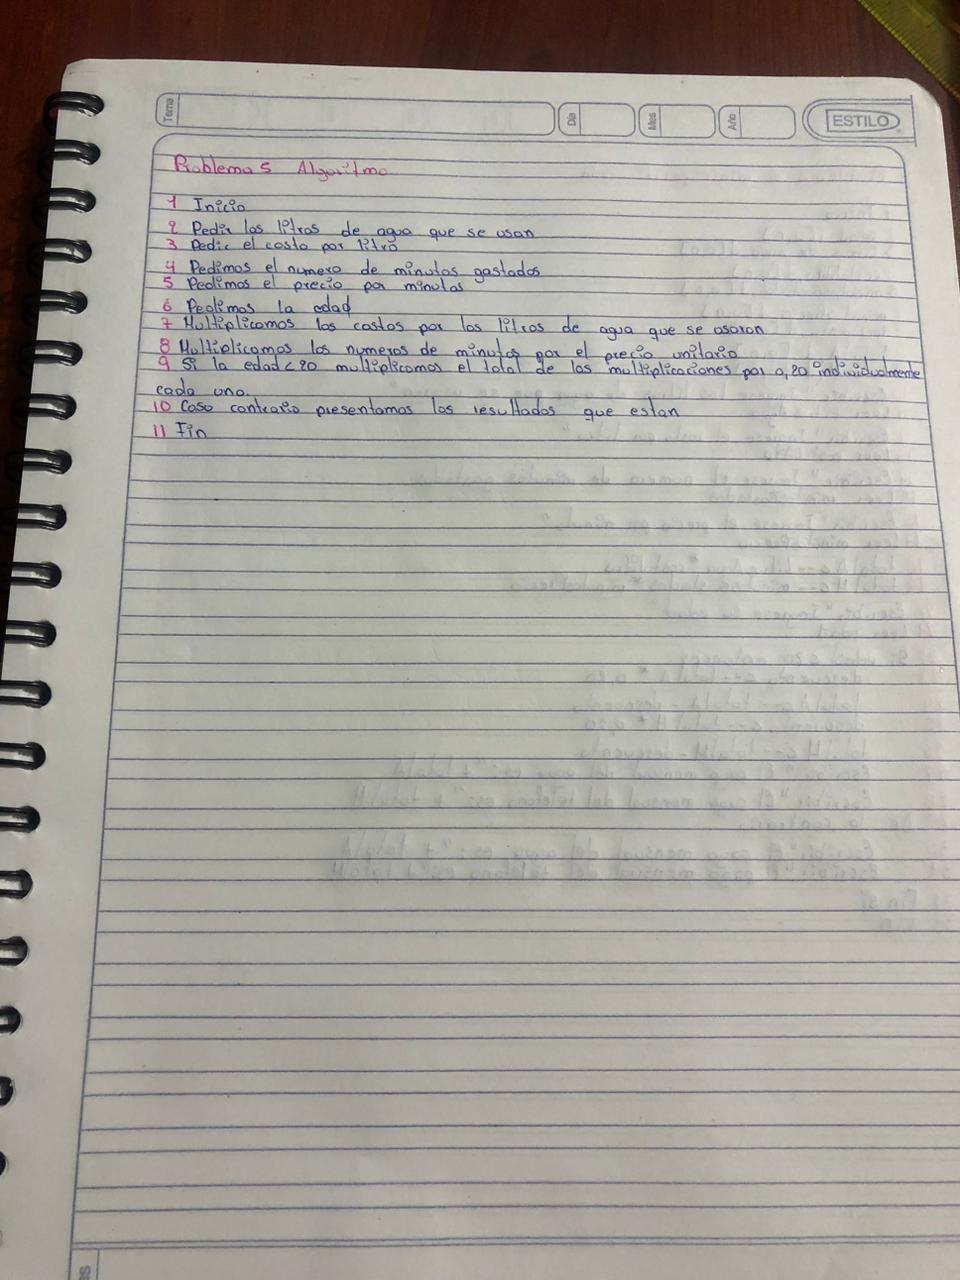 Tema
Día
Mes
Año
ESTILO
Problema 5 Algoritmo
1 Inicio
2 Pedir los litros de agua que se usan
3 Pedir el costo por litro
4 Pedimos el numero de minutos gastados
5 Pedimos el precio por minutos
6 Pedimos la edad
7 Multiplicamos los costos por los litros de agua que se usaron
8 Multiplicamos los numeros de minutos por el precio unitario
9 Si la edad < 20 multiplicamos el total de las multiplicaciones por 0,20 individualmente
cada uno.
10 Caso contrario presentamos los resultados que estan
11 Fin